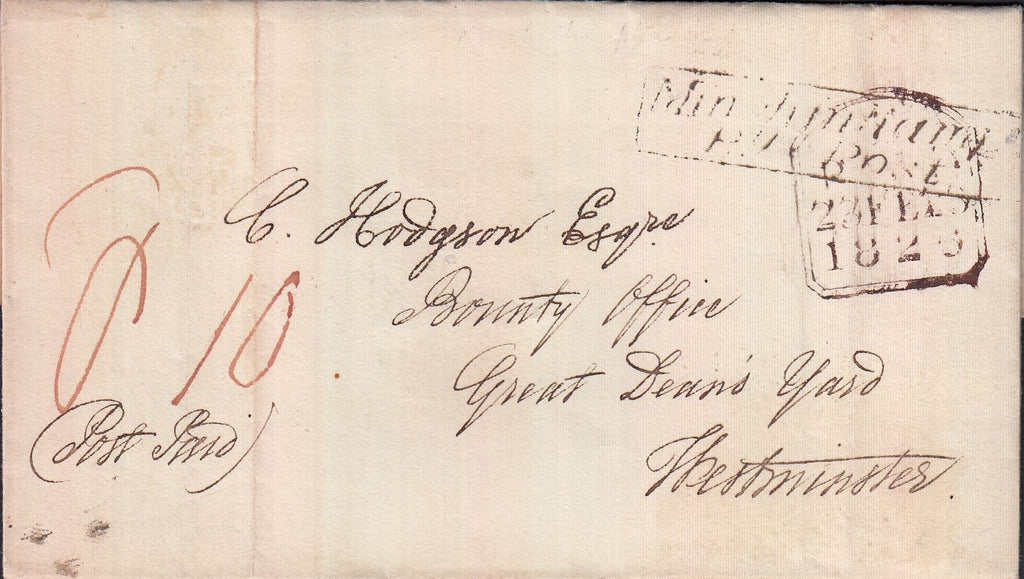 Minchinhampton
Penny Post
22 FE 22
182
C. Hodgson Esqre.
Bounty Office
Great Dean's Yard
Westminster.
P 10
(Post Paid)